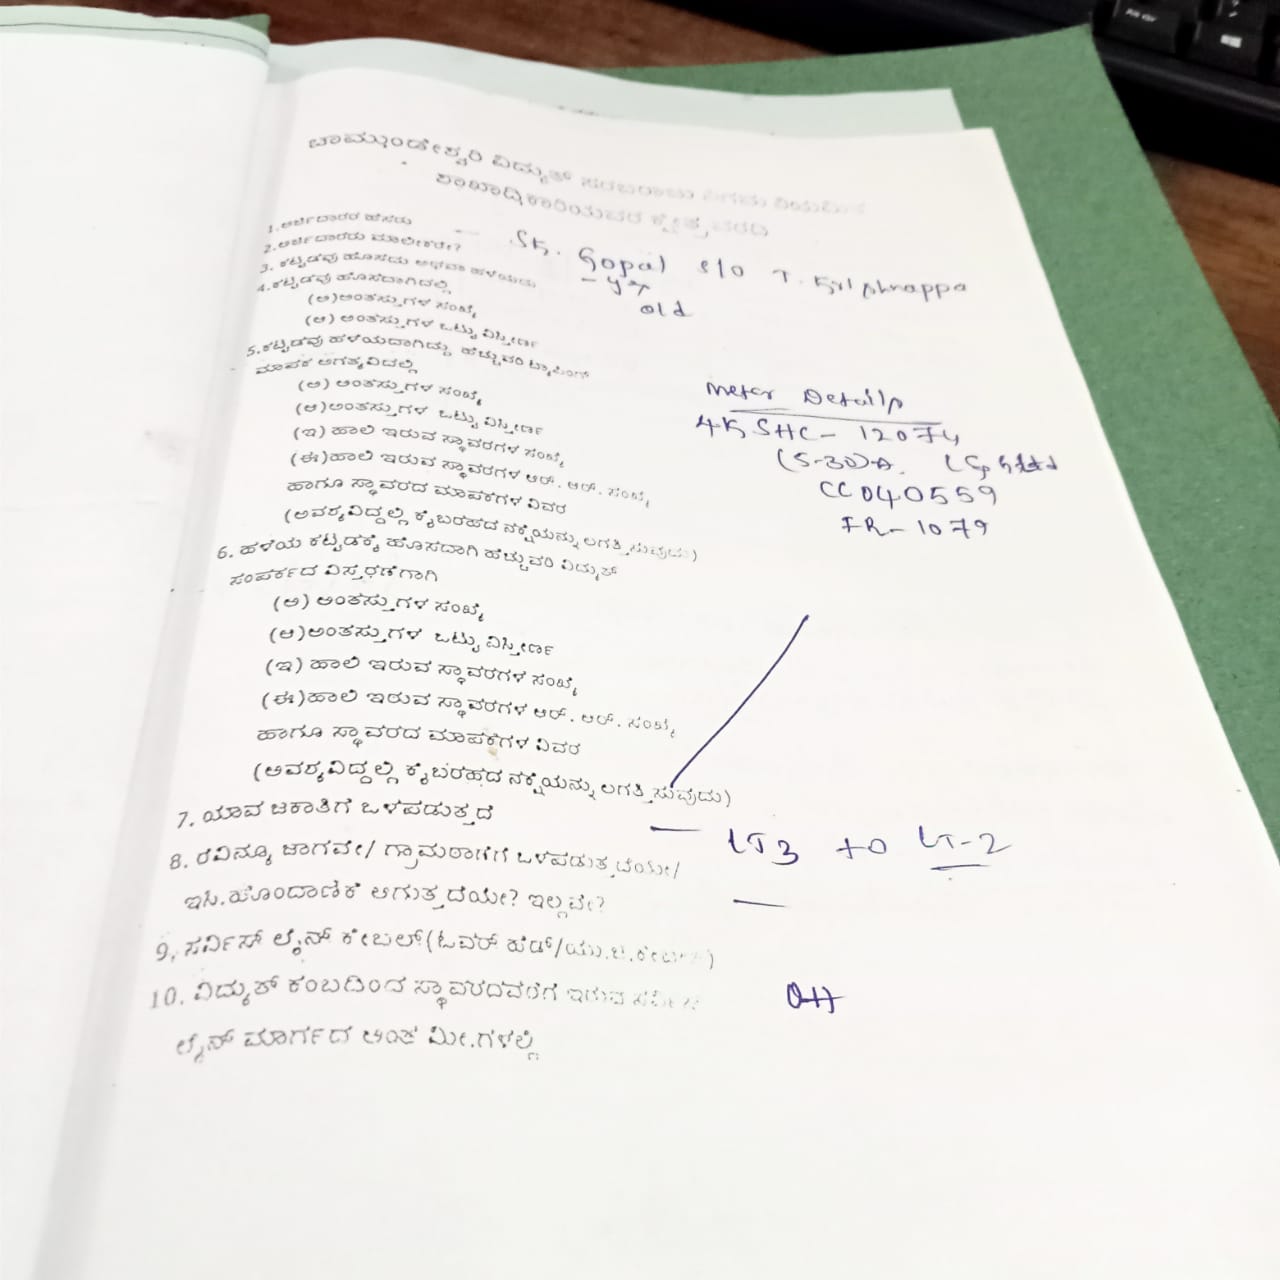 ಚಾಮುಂಡೇಶ್ವರಿ ವಿದ್ಯುತ್ ಸರಬರಾಜು ನಿಗಮ ನಿಯಮಿತ
ಶಾಖಾಧಿಕಾರಿಯವರ ಕ್ಷೇತ್ರ ವರದಿ
1.ಅರ್ಜಿದಾರರ ಹೆಸರು — Sh. Gopal S/o T. Krishnappa
2.ಅರ್ಜಿದಾರರು ಮಾಲೀಕರೇ? -
3. ಕಟ್ಟಡವು ಹೊಸದು ಅಥವಾ ಹಳೆಯದು old
4.ಕಟ್ಟಡವು ಹೊಸದಾಗಿದಲ್ಲಿ
(ಅ)ಅಂತಸ್ತುಗಳ ಸಂಖ್ಯೆ
(ಆ) ಅಂತಸ್ತುಗಳ ಒಟ್ಟು ವಿಸ್ತೀರ್ಣ
5.ಕಟ್ಟಡವು ಹಳೆಯದಾಗಿದ್ದು ಹೆಚ್ಚುವರಿ ಟ್ಯಾಪಿಂಗ್
ಮಾಪಕ ಅಗತ್ಯವಿದಲ್ಲಿ
(ಅ) ಅಂತಸ್ತುಗಳ ಸಂಖ್ಯೆ
(ಆ)ಅಂತಸ್ತುಗಳ ಒಟ್ಟು ವಿಸ್ತೀರ್ಣ
(ಇ) ಹಾಲಿ ಇರುವ ಸ್ಥಾವರಗಳ ಸಂಖ್ಯೆ
(ಈ)ಹಾಲಿ ಇರುವ ಸ್ಥಾವರಗಳ ಆರ್. ಆರ್. ಸಂಖ್ಯೆ
ಹಾಗೂ ಸ್ಥಾವರದ ಮಾಪಕಗಳ ವಿವರ
(ಅವಶ್ಯವಿದ್ದಲ್ಲಿ ಕೈಬರಹದ ನಕ್ಷೆಯನ್ನು ಲಗತ್ತಿಸುವುದು)
Meter Details
SHC- 12074
(5-30)A.
CC040559
IR- 1079
6. ಹಳೆಯ ಕಟ್ಟಡಕ್ಕೆ ಹೊಸದಾಗಿ ಹೆಚ್ಚುವರಿ ವಿದ್ಯುತ್
ಸಂಪರ್ಕದ ವಿಸ್ತರಣೆಗಾಗಿ
(ಅ) ಅಂತಸ್ತುಗಳ ಸಂಖ್ಯೆ
(ಆ)ಅಂತಸ್ತುಗಳ ಒಟ್ಟು ವಿಸ್ತೀರ್ಣ
(ಇ) ಹಾಲಿ ಇರುವ ಸ್ಥಾವರಗಳ ಸಂಖ್ಯೆ
(ಈ)ಹಾಲಿ ಇರುವ ಸ್ಥಾವರಗಳ ಆರ್. ಆರ್. ಸಂಖ್ಯೆ
ಹಾಗೂ ಸ್ಥಾವರದ ಮಾಪಕಗಳ ವಿವರ
(ಅವಶ್ಯವಿದ್ದಲ್ಲಿ ಕೈಬರಹದ ನಕ್ಷೆಯನ್ನು ಲಗತ್ತಿಸುವುದು)
7. ಯಾವ ಜಕಾತಿಗೆ ಒಳಪಡುತ್ತದೆ — LT3 to LT-2
8. ರೆವಿನ್ಯೂ ಜಾಗವೇ/ ಗ್ರಾಮಠಾಣೆಗೆ ಒಳಪಡುತ್ತದೆಯೇ/
ಇಸಿ.ಹೊಂದಾಣಿಕೆ ಆಗುತ್ತದೆಯೇ? ಇಲ್ಲವೇ? —
9, ಸರ್ವಿಸ್ ಲೈನ್ ಕೇಬಲ್(ಓವರ್ ಹೆಡ್/ಯು.ಜಿ.ಕೇಬಲ್) OH
10. ವಿದ್ಯುತ್ ಕಂಬದಿಂದ ಸ್ಥಾವರದವರೆಗೆ ಇರುವ
ಲೈನ್ ಮಾರ್ಗದ ಅಂತ ಮೀ.ಗಳಲ್ಲಿ